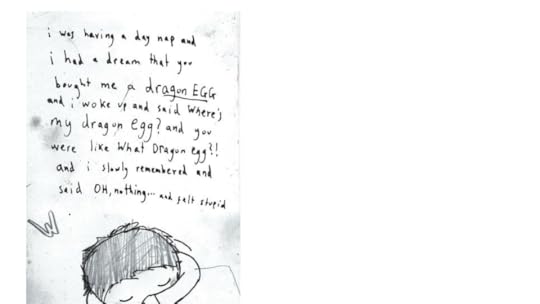 i was having a day nap and
i had a dream that you
bought me a dragon EGG
and i woke up and said Where's
my dragon egg? and you
were like What Dragon egg?!
and i slowly remembered and
said OH, nothing... and felt stupid